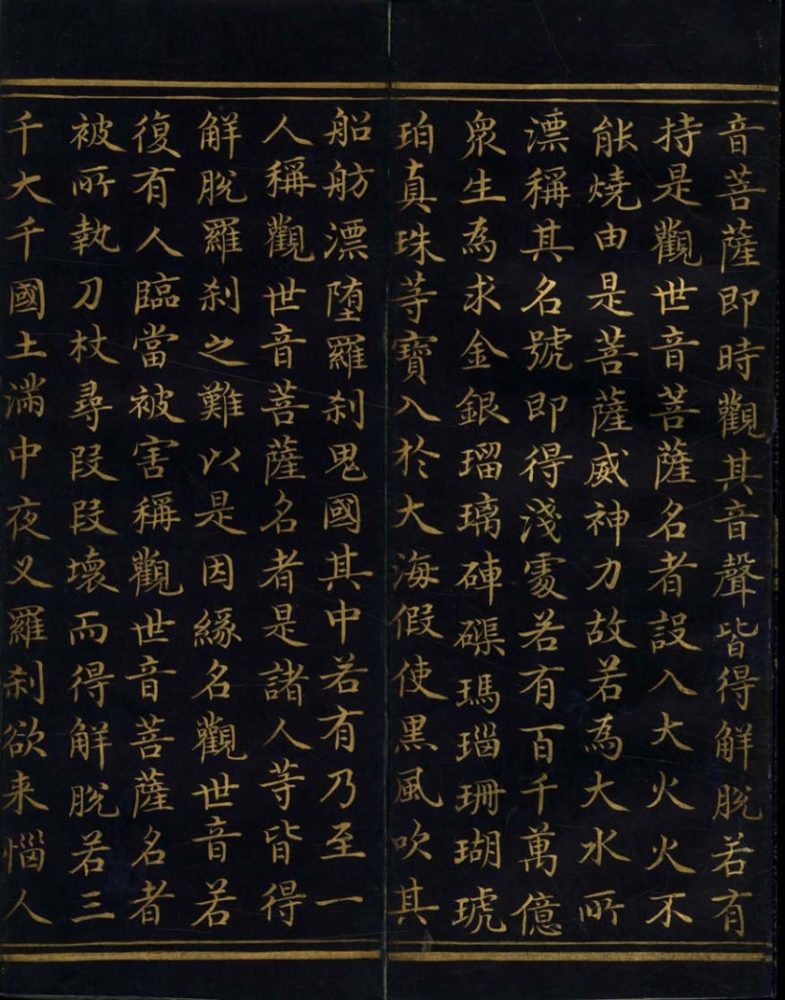 音菩薩即時觀其音聲皆得解脫若有
持是觀世音菩薩名者設入大火火不
能燒由是菩薩威神力故若為大水所
漂稱其名號即得淺處若有百千萬億
衆生為求金銀瑠璃硨磲瑪瑙珊瑚琥
珀真珠等寶入於大海假使黑風吹其
船舫漂墮羅刹鬼國其中若有乃至一
人稱觀世音菩薩名者是諸人等皆得
解脫羅刹之難以是因緣名觀世音若
復有人臨當被害稱觀世音菩薩名者
被所執刀杖尋段段壞而得解脫若三
千大千國土滿中夜叉羅刹欲来惱人